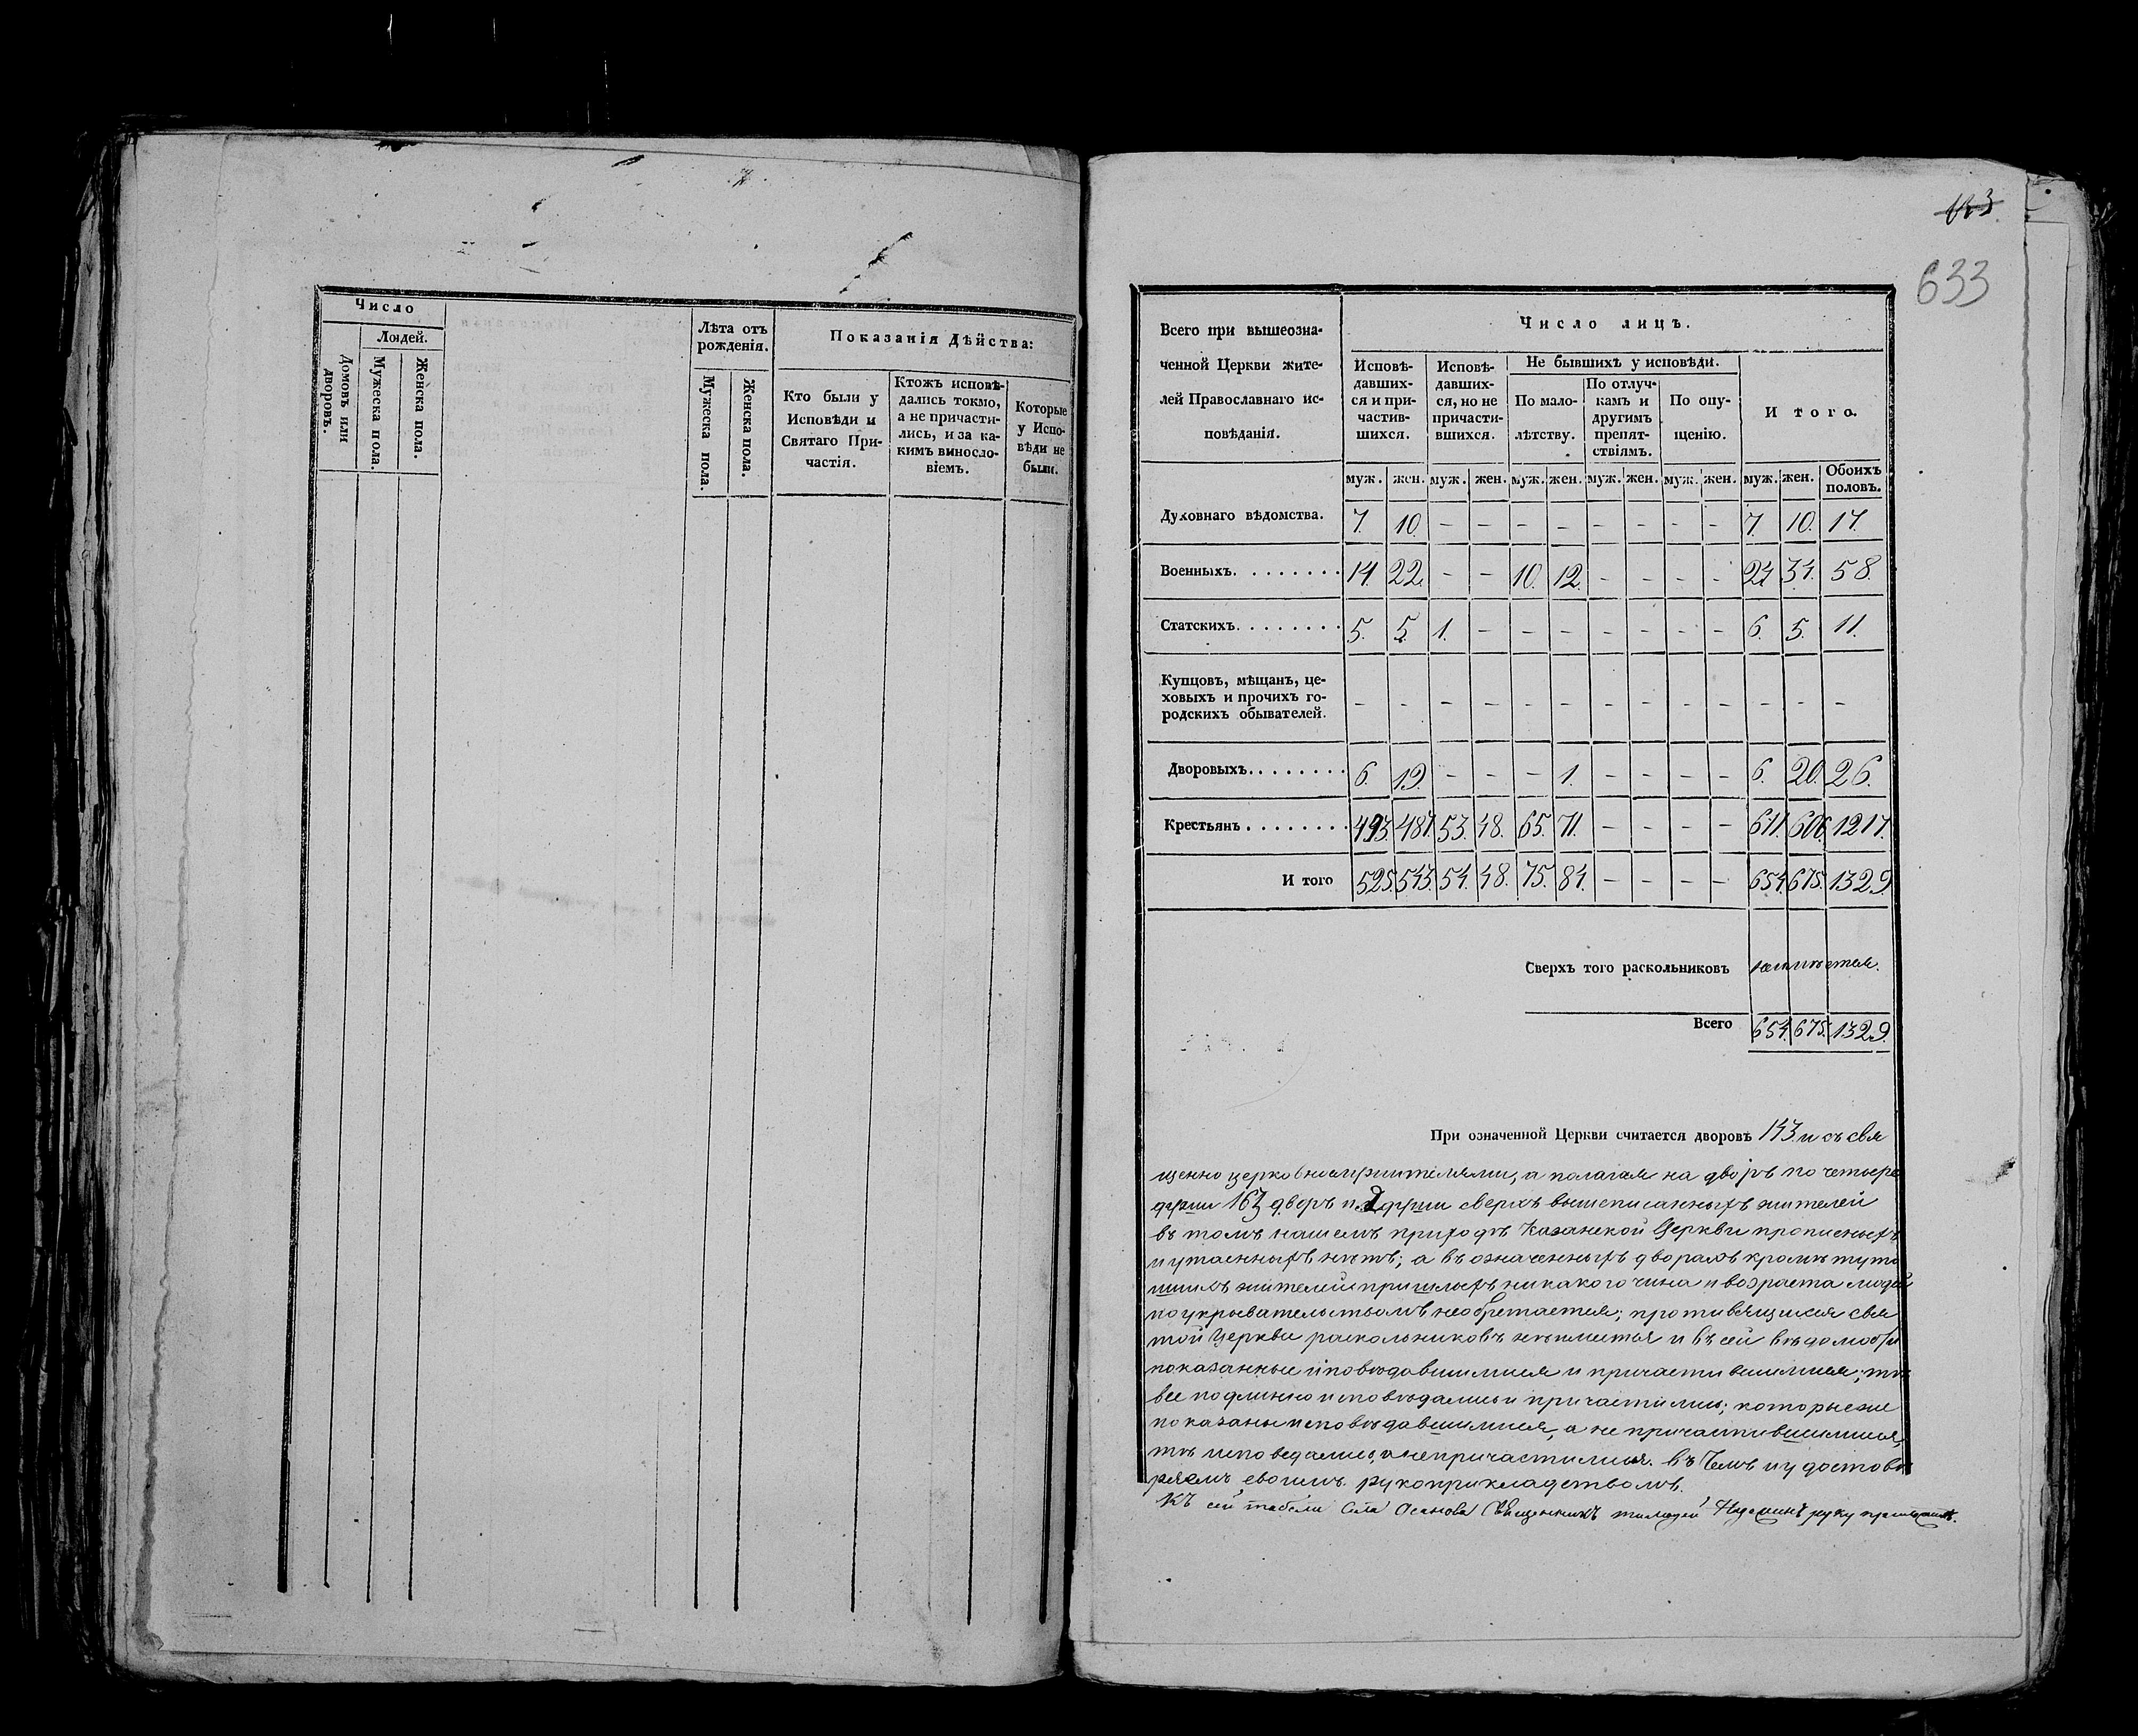 Число
Людей.
Домовъ или дворовъ.
Мужеска пола.
Женска пола.
Лѣта отъ
рожденія.
Мужеска пола.
Женска пола.
Показанія Дѣйства:
Кто были у
Исповѣди и
Святаго При-
частія.
Ктожъ исповѣ-
дались токмо,
а не причасти-
лись, и за ка-
кимъ виносло-
віемъ.
Которые
у Испо-
вѣди не
были.
633
Всего при вышеозна-
ченной Церкви жите-
лей Православнаго ис-
повѣданія.
Число лицъ.
Исповѣ-
давших-
ся и при-
частив-
шихся.
Исповѣ-
давших-
ся, но не
причасти-
вшихся.
Не бывшихъ у исповѣди.
По мало-
лѣтству.
По отлуч-
камъ и
другимъ
препят-
ствіямъ.
По опу-
щенію.
И того.
муж. жен. муж. жен. муж. жен. муж. жен. муж. жен. муж. жен. Обоихъ половъ.
Духовнаго вѣдомства. 7. 10. - - - - - - - - 7. 10. 17.
Военныхъ. . . . . . . . 14. 22. - - 10. 12. - - - - 24. 34. 58.
Статскихъ. . . . . . . . 5. 5. 1. - - - - - - - 6. 5. 11.
Купцовъ, мѣщанъ, це-
ховыхъ и прочихъ го-
родскихъ обывателей. - - - - - - - - - - - - -
Дворовыхъ. . . . . . . . 6. 19. - - - 1. - - - - 6. 20. 26.
Крестьянъ . . . . . . . . 493. 487. 53. 48. 65. 71. - - - - 611. 606. 1217.
И того 525. 543. 54. 48. 75. 84. - - - - 654. 675. 1329
Сверхъ того раскольниковъ неимѣется.
Всего 654. 675. 1329.
При означенной Церкви считается дворовъ 143 и съ свя
щенно церковнослужителями, а полагая на дворъ по четыре
души 163 двора и 2 души сверхъ вышеписанныхъ жителей
въ томъ нашемъ приходѣ Казанской Церкви прописныхъ
и утаенныхъ нѣтъ; а въ означенныхъ дворахъ кромѣ туто
шнихъ жителей пришлыхъ никакого чина и возраста людей
по укрывательствомъ необретается; противящихся свя
той Церкви раскольниковъ неимѣется и въ сей вѣдомости
показанные исповѣдавшимися и причастившимися; тѣ
все подлинно исповѣдались и причастились; которые же
показаны исповѣдавшимися, а не причастившимися,
тѣ исповедались, а непричастились. въ Чемъ и удостовѣ
ряемъ своимъ рукоприкладствомъ.
Къ сей табели Села Священникъ руку приложилъ.